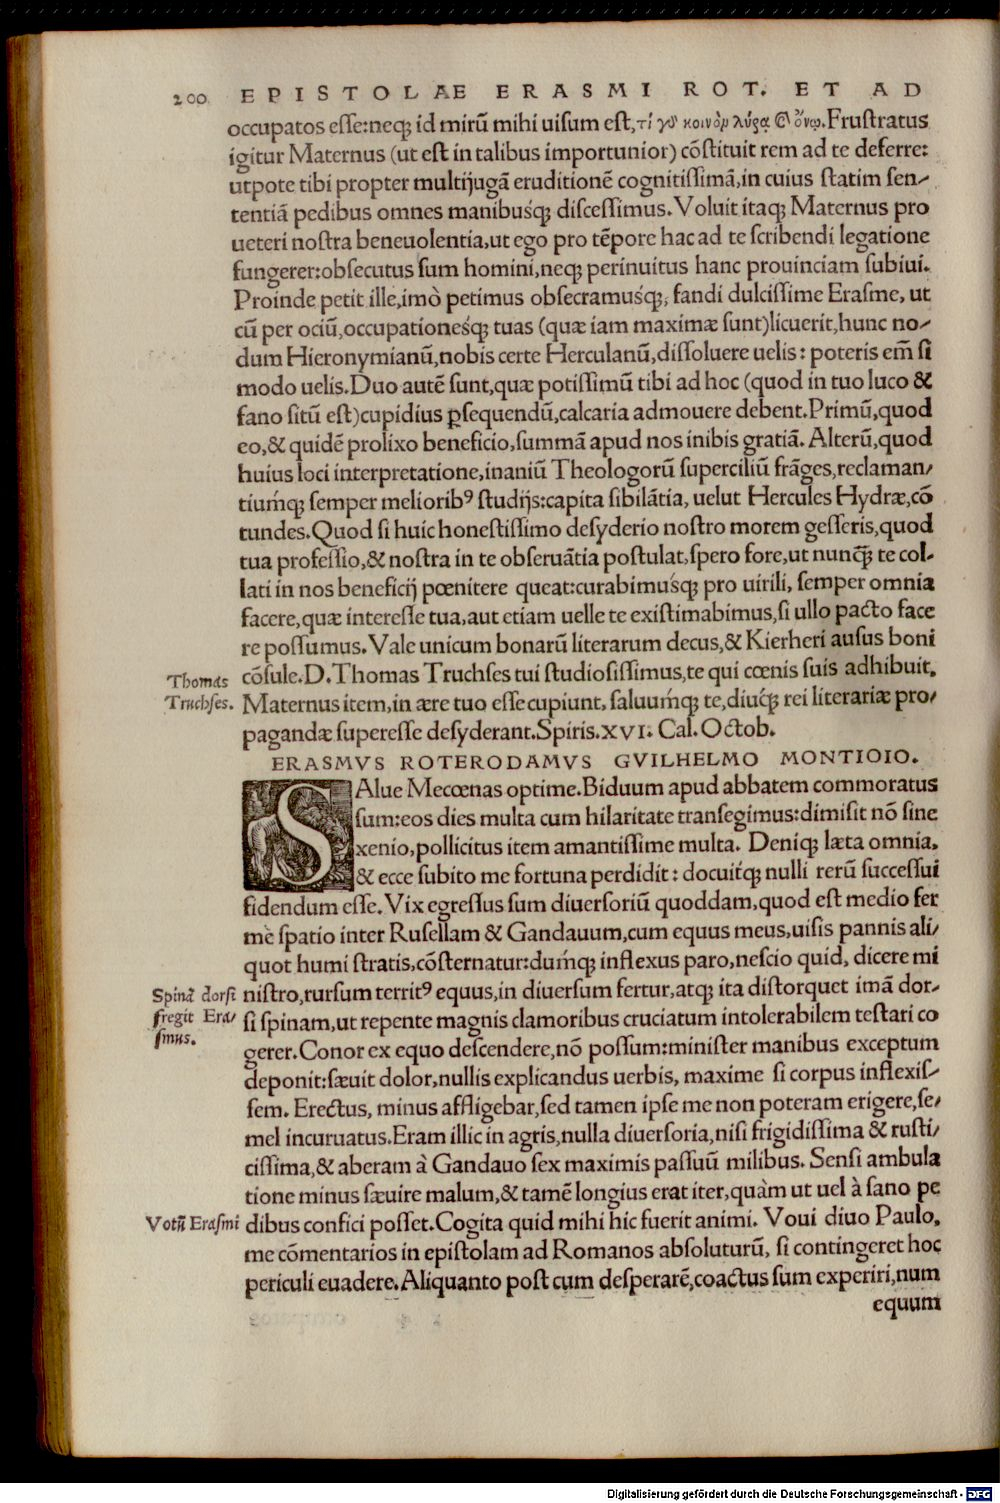 200 EPISTOLAE ERASMI ROT. ET AD
occupatos esse:neq; id mirũ mihi uisum est, τί γὸ κοινὸν λύρᾳ & ὄνῳ. Frustratus
igitur Maternus (ut est in talibus importunior) cõstituit rem ad te deferre:
utpote tibi propter multijugã eruditionẽ cognitissimã,in cuius statim sen-
tentiã pedibus omnes manibusq́; discessimus. Voluit itaq; Maternus pro
ueteri nostra beneuolentia,ut ego pro tẽpore hac ad te scribendi legatione
fungerer:obsecutus sum homini,neq; perinuitus hanc prouinciam subiui.
Proinde petit ille,imò petimus obsecramusq́;, fandi dulcissime Erasme, ut
cũ per ociũ,occupationesq́; tuas (quæ iam maximæ sunt)licuerit,hunc no-
dum Hieronymianũ,nobis certe Herculanũ,dissoluere uelis: poteris em̃ si
modo uelis. Duo autẽ sunt,quæ potissimũ tibi ad hoc (quod in tuo luco &
fano sitũ est)cupidius ꝑsequendũ,calcaria admouere debent. Primũ,quod
eo,& quidẽ prolixo beneficio,summã apud nos inibis gratiã. Alterũ,quod
huius loci interpretatione,inaniũ Theologorũ superciliũ frãges,reclaman-
tiumq́; semper meliorib⁹ studijs:capita sibilãtia, uelut Hercules Hydræ,cõ
tundes. Quod si huic honestissimo desyderio nostro morem gesseris,quod
tua professio,& nostra in te obseruãtia postulat,spero fore,ut nunq̃; te col-
lati in nos beneficij pœnitere queat:curabimusq́; pro uirili, semper omnia
facere,quæ interesse tua,aut etiam uelle te existimabimus,si ullo pacto face
re possumus. Vale unicum bonarũ literarum decus,& Kierheri ausus boni
cõsule. D. Thomas Truchses tui studiosissimus,te qui cœnis suis adhibuit.
Thomas
Truchses.
Maternus item,in ære tuo esse cupiunt, saluumq́; te,diuq́; rei literariæ pro-
pagandæ superesse desyderant. Spiris. XVI. Cal. Octob.
ERASMVS ROTERODAMVS GVILHELMO MONTIOIO.
SAlue Mecœnas optime. Biduum apud abbatem commoratus
sum:eos dies multa cum hilaritate transegimus:dimisit nõ sine
xenio,pollicitus item amantissime multa. Deniq; læta omnia,
& ecce subito me fortuna perdidit: docuitq́; nulli rerũ successui
fidendum esse. Vix egressus sum diuersoriũ quoddam,quod est medio fer
mè spatio inter Rusellam & Gandauum,cum equus meus,uisis pannis ali-
quot humi stratis,cõsternatur:dumq́; inflexus paro,nescio quid, dicere mi
nistro,rursum territ⁹ equus,in diuersum fertur,atq; ita distorquet imã dor-
Spinã dorsi
fregit Era-
smus.
si spinam,ut repente magnis clamoribus cruciatum intolerabilem testari co
gerer. Conor ex equo descendere,nõ possum:minister manibus exceptum
deponit:sæuit dolor,nullis explicandus uerbis, maxime si corpus inflexis-
sem. Erectus, minus affligebar,sed tamen ipse me non poteram erigere,se-
mel incuruatus. Eram illic in agris,nulla diuersoria,nisi frigidissima & rusti-
cissima,& aberam à Gandauo sex maximis passuũ milibus. Sensi ambula
tione minus sæuire malum,& tamẽ longius erat iter,quàm ut uel à sano pe
Votũ Erasmi
dibus confici posset. Cogita quid mihi hic fuerit animi. Voui diuo Paulo,
me cõmentarios in epistolam ad Romanos absoluturũ, si contingeret hoc
periculi euadere. Aliquanto post cum desperarẽ,coactus sum experiri,num
equum
Digitalisierung gefördert durch die Deutsche Forschungsgemeinschaft - DFG